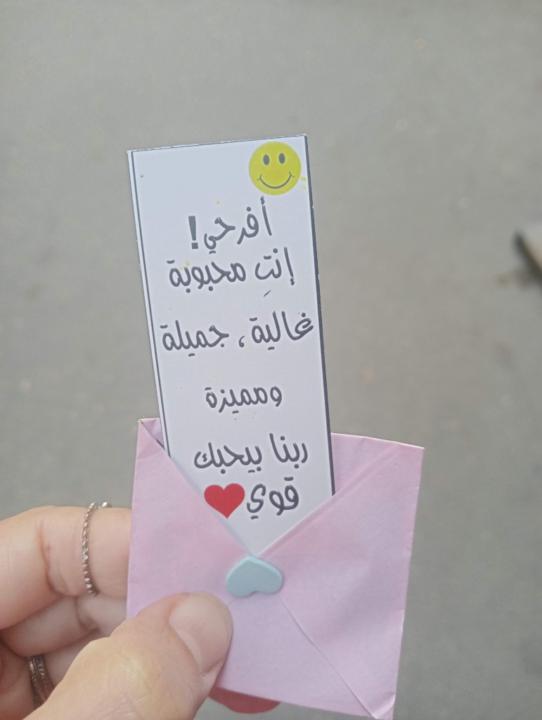 أفرحي!
إنتِ محبوبة
غالية، جميلة
ومميزة
ربنا بيحبك
قوي